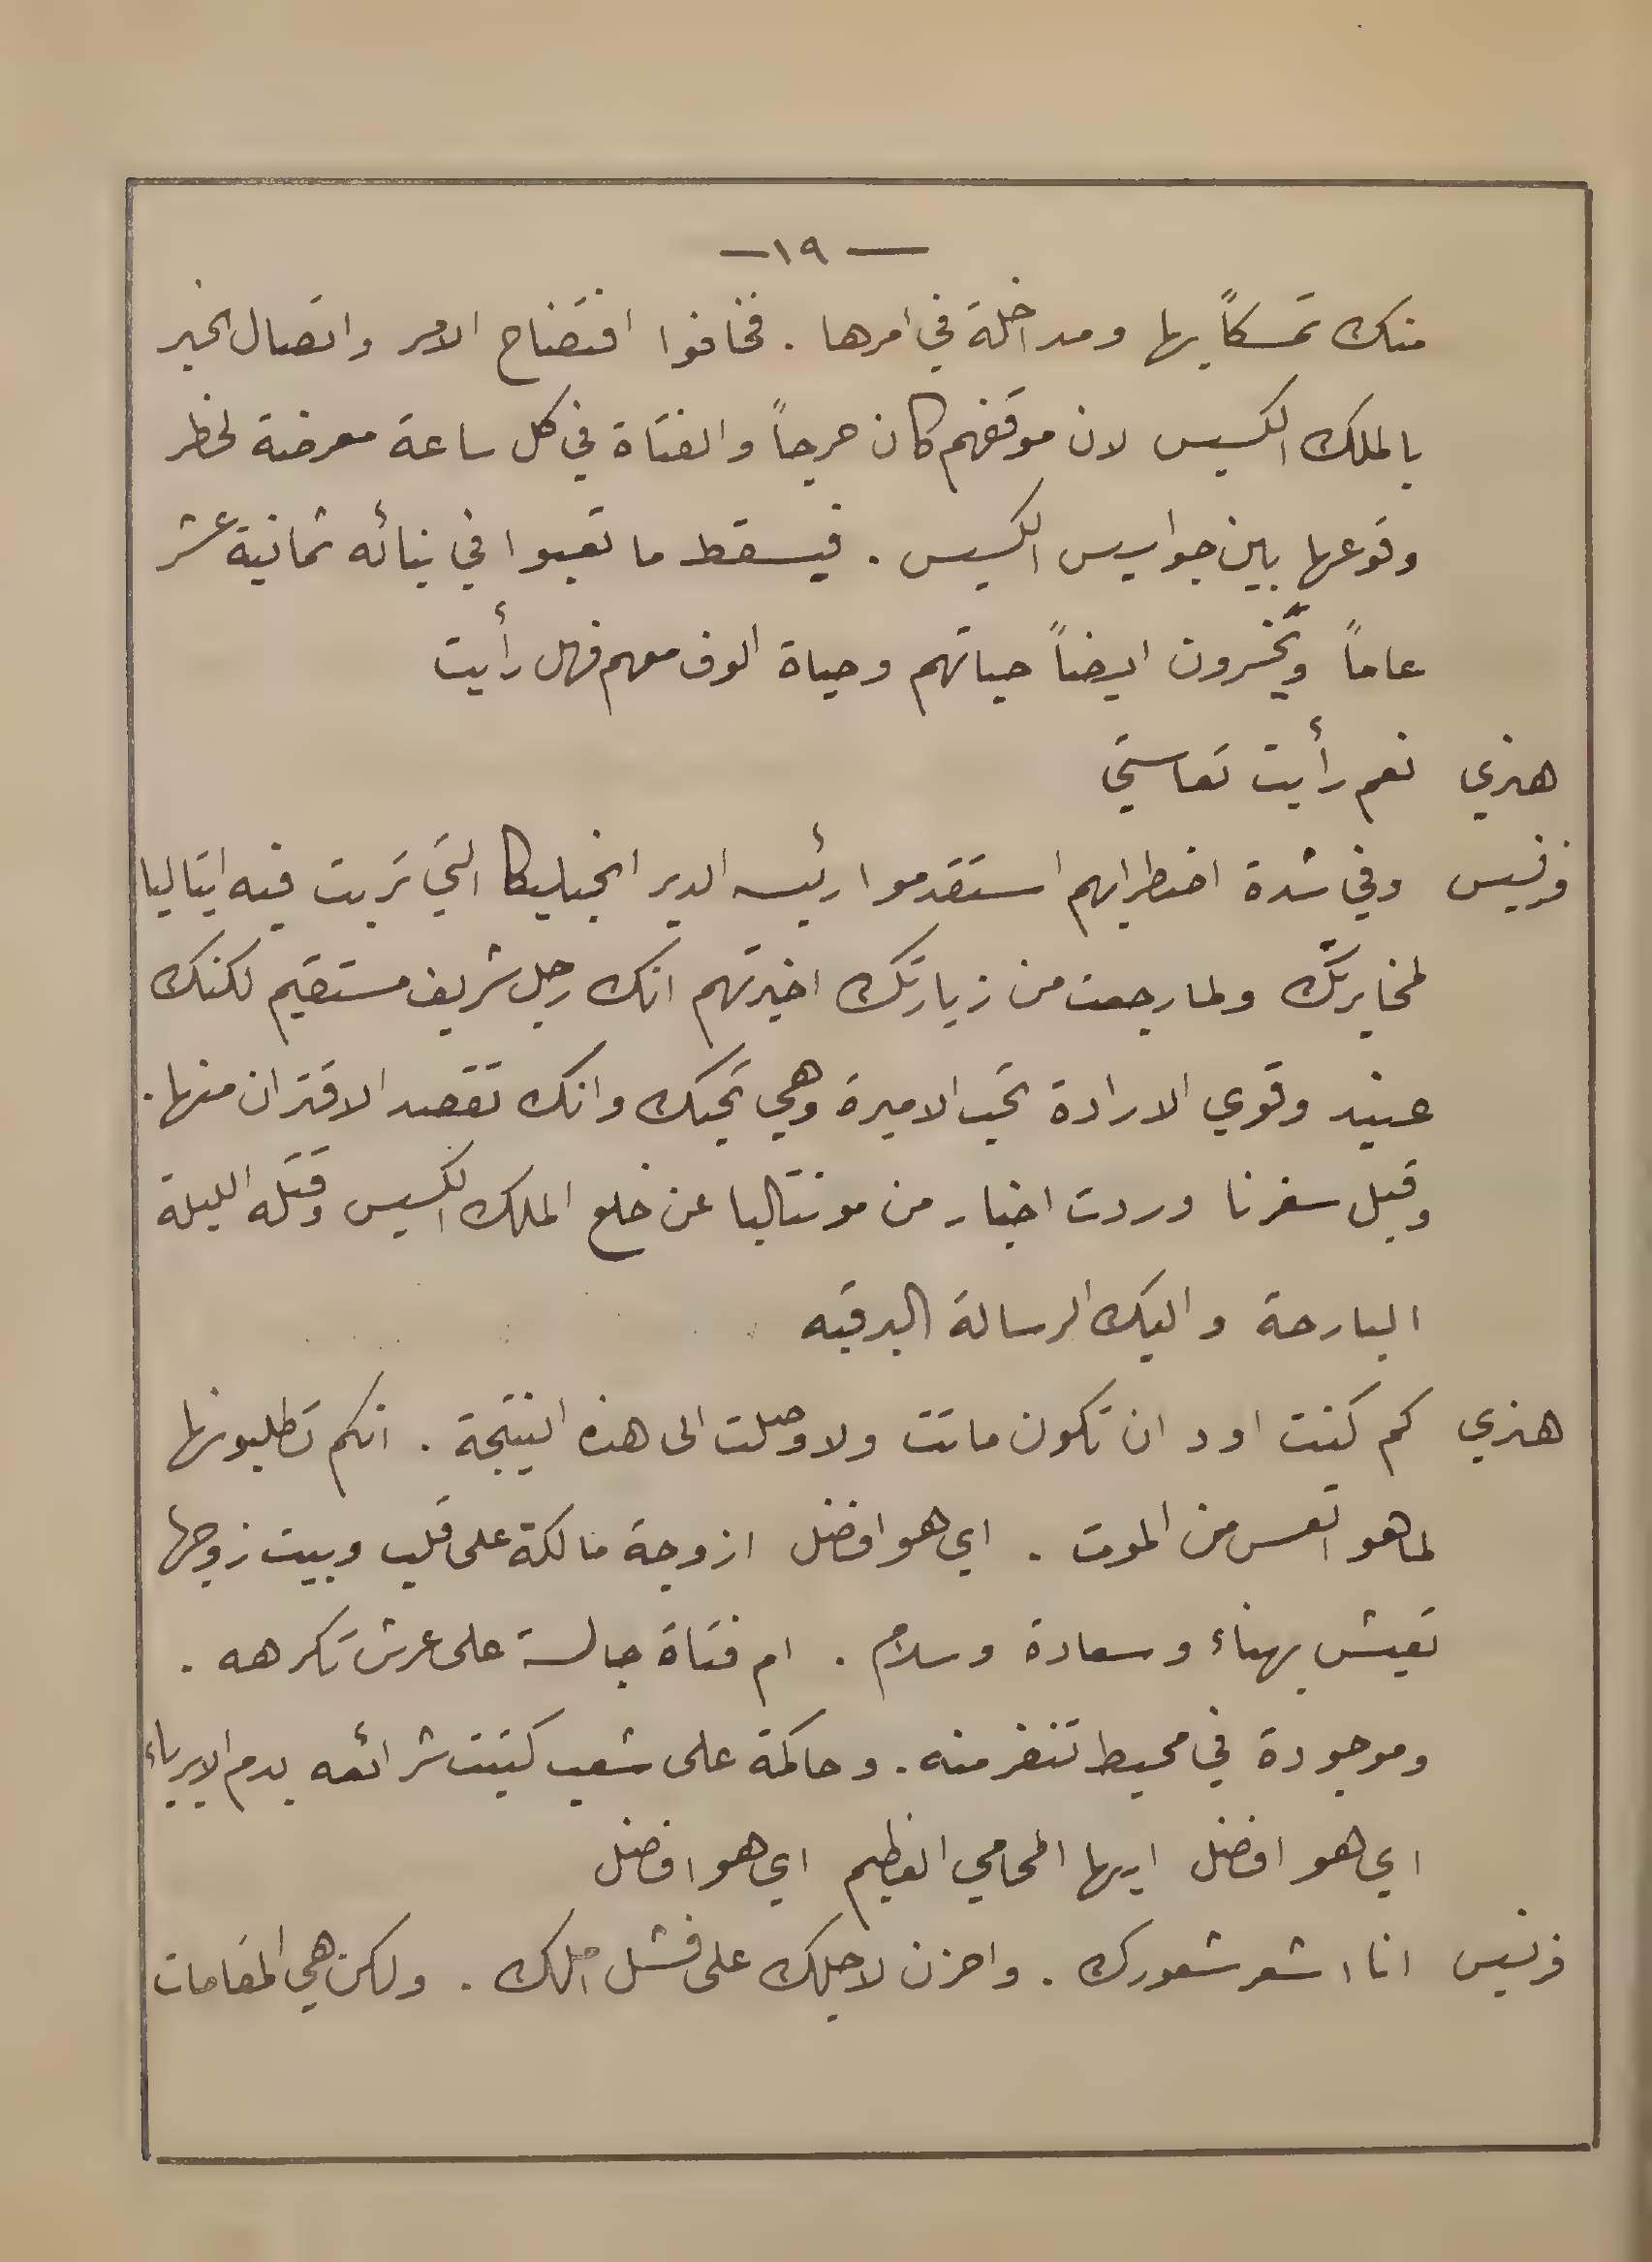 — ١٩ —
منك تمسكاً بها ومداخلة في امرها . فخافوا افتضاح الامر واتصال الخبر
بالملك الكسيس لان موقفهم كان حرجاً والفتاة في كل ساعة معرضة لخطر
وقوعها بين جواسيس الكسيس . فيسقط ما تعبوا في بنائه ثمانية عشر
عاماً ويخسرون ايضاً حياتهم وحياة الوف معهم فهل رأيت
هنري نعم رأيت تعاستي
فرنسيس وفي شدة اضطرابهم استقدموا رئيسه الدير انجيليكا التي تربت فيه ايتاليا
لمخابرتك ولما رجعت من زيارتك اخبرتهم انك رجل شريف مستقيم لكنك
عنيد وقوي الارادة تحب الاميرة وهي تحبك وانك تقصد الاقتران منها .
وقبل سفرنا وردت اخبار من مونتاليا عن خلع الملك الكسيس وقتله الليلة
البارحة واليك الرسالة البرقيه
هنري كم كنت اود ان تكون ماتت ولا وصلت الى هذه النتيجة . انكم تطلبونها
لما هو اتعس من الموت . اي هو افضل ازوجة مالكة على قلب وبيت زوجها
تعيش بهناء وسعادة وسلام . ام فتاة جالسة على عرش تكرهه .
وموجودة في محيط تنفر منه . وحاكمة على شعب كتبت شرائعه بدم الابرياء
اي هو افضل ايها المحامي العظيم اي هو افضل
فرنسيس انا اشعر شعورك . واحزن لاجلك على فشل املك . ولكن هي المقامات